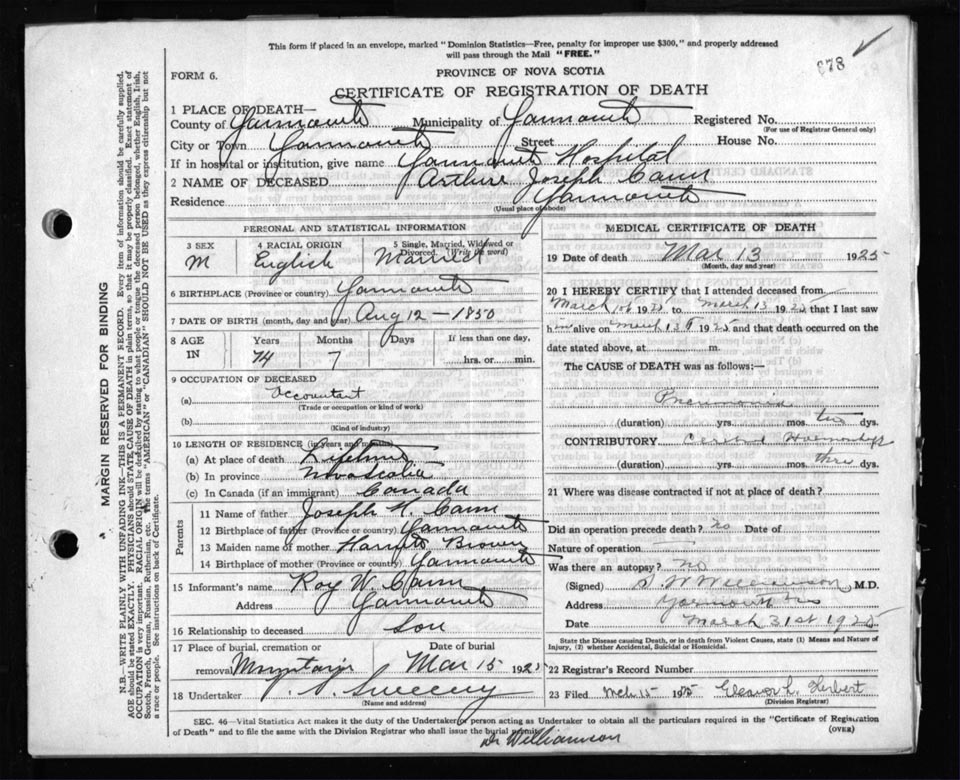 This form if placed in an envelope, marked "Dominion Statistics—Free, penalty for improper use $300," and properly addressed
will pass through the Mail "FREE."
678
FORM 6.
PROVINCE OF NOVA SCOTIA
CERTIFICATE OF REGISTRATION OF DEATH
1 PLACE OF DEATH—
County of Yarmouth Municipality of Yarmouth Registered No.
(For use of Registrar General only)
City or Town Yarmouth Street House No.
If in hospital or institution, give name Yarmouth Hospital
2 NAME OF DECEASED Arthur Joseph Cann
Residence Yarmouth
(Usual place of abode)
PERSONAL AND STATISTICAL INFORMATION
3 SEX 4 RACIAL ORIGIN 5 Single, Married, Widowed or
Divorced. (Write the word)
M English Married
6 BIRTHPLACE (Province or country) Yarmouth
7 DATE OF BIRTH (month, day and year) Aug 12 - 1850
8 AGE Years Months Days If less than one day,
IN 74 7 hrs. or min.
9 OCCUPATION OF DECEASED
(a) Accountant
(Trade or occupation or kind of work)
(b)
(Kind of industry)
10 LENGTH OF RESIDENCE (in years and months)
(a) At place of death Lifetime
(b) In province Nova Scotia
(c) In Canada (if an immigrant) Canada
Parents
11 Name of father Joseph Cann
12 Birthplace of father (Province or country) Yarmouth
13 Maiden name of mother Brown
14 Birthplace of mother (Province or country) Yarmouth
15 Informant's name Roy W. Cann
Address Yarmouth
16 Relationship to deceased Son
17 Place of burial, cremation or Date of burial
removal Mountain Mar 15 1925
18 Undertaker Sweeny
(Name and address)
MEDICAL CERTIFICATE OF DEATH
19 Date of death Mar 13 1925
(Month, day and year)
20 I HEREBY CERTIFY that I attended deceased from
March 10th 1925 to March 13 1925 that I last saw
him alive on March 13th 1925 and that death occurred on the
date stated above, at m.
The CAUSE of DEATH was as follows:—
Pneumonia
(duration) yrs. mos. ten dys.
CONTRIBUTORY Cerebral Haemorrhage
(duration) yrs. mos. three dys.
21 Where was disease contracted if not at place of death?
Did an operation precede death? no Date of
Nature of operation
Was there an autopsy? No
(Signed) S. W. Williamson, M.D.
Address Yarmouth NS
Date March 31st 1925
State the Disease causing Death, or in death from Violent Causes, state (1) Means and Nature of
Injury, (2) whether Accidental, Suicidal or Homicidal.
22 Registrar's Record Number
23 Filed Mch 15 1925 Eleanor L. Herbert
(Division Registrar)
SEC. 46—Vital Statistics Act makes it the duty of the Undertaker or person acting as Undertaker to obtain all the particulars required in the "Certificate of Registration
of Death" and to file the same with the Division Registrar who shall issue the burial permit.
(OVER)
Dr Williamson
MARGIN RESERVED FOR BINDING
N.B.—WRITE PLAINLY WITH UNFADING INK—THIS IS A PERMANENT RECORD. Every item of information should be carefully supplied.
AGE should be stated EXACTLY. PHYSICIANS should STATE CAUSE OF DEATH in plain terms, so that it may be properly classified. Exact statement of
OCCUPATION is very important. RACIAL ORIGIN will be described by stating to what people or tongue the deceased person belonged, whether English, Irish,
Scotch, French, German, Russian, Ruthenian, etc. The terms "AMERICAN" or "CANADIAN" SHOULD NOT BE USED as they express citizenship but not
a race or people. See instructions on back of Certificate.